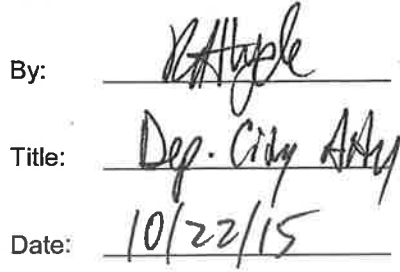 By:
Title: Dep. City Atty
Date: 10/22/15